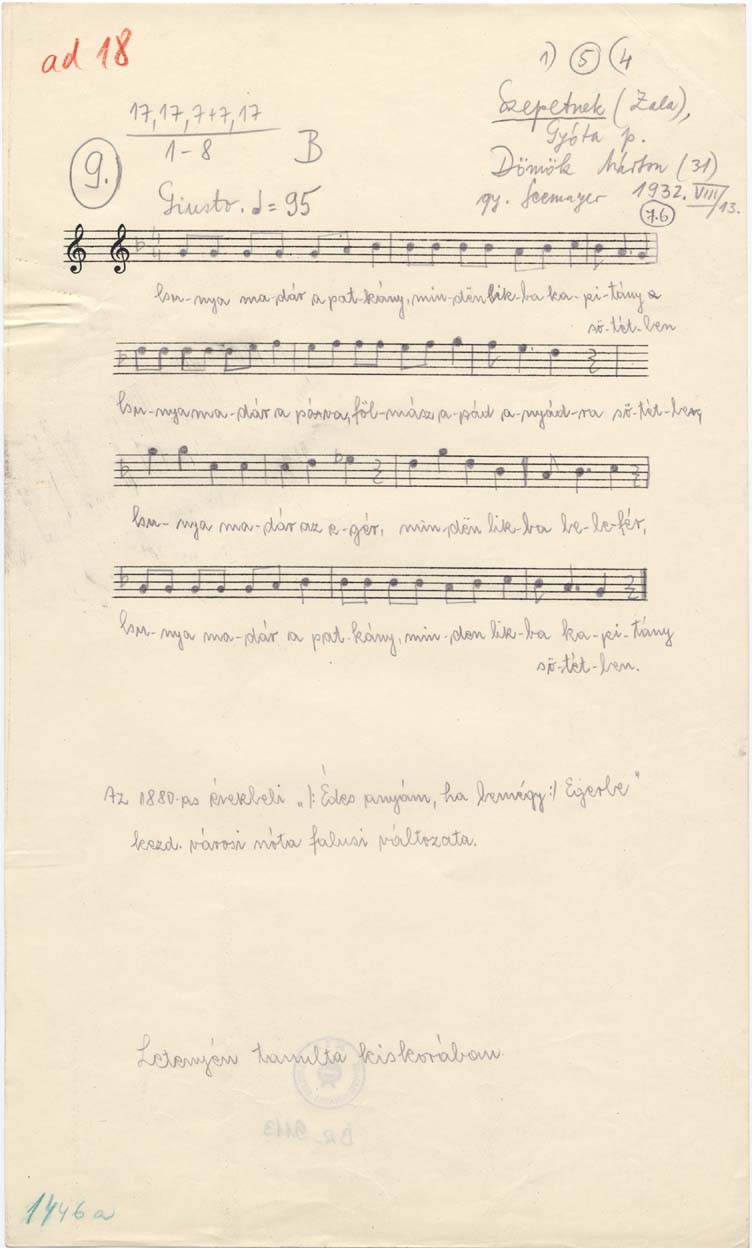 ad 18
1) 5 (4
17, 17, 7+7, 17
1-8
B
9.
Szepetnek (Zala),
Gyóta p.
Dömök Márton (31)
gy. Seemayer 1932. VIII/13.
7.6
Giusto. ♩= 95
Csu-nya ma-dár a pat-kány, min-dën lik-ba ka-pi-tány a
sö-tét-ben
Csu-nya ma-dár a párva, föl-mász a-pád a-nyád-ra sö-tét-ben,
Csu-nya ma-dár az e-gér, min-dën lik-ba be-le-fér,
Csu-nya ma-dár a pat-kány, min-den lik-ba ka-pi-tány
sö-tét-ben.
Az 1880-as évekbeli „/: Édes anyám, ha bemégy :/ Egerbe"
kezd. városi nóta falusi változata.
Letenyén tanulta kiskorában
1446a